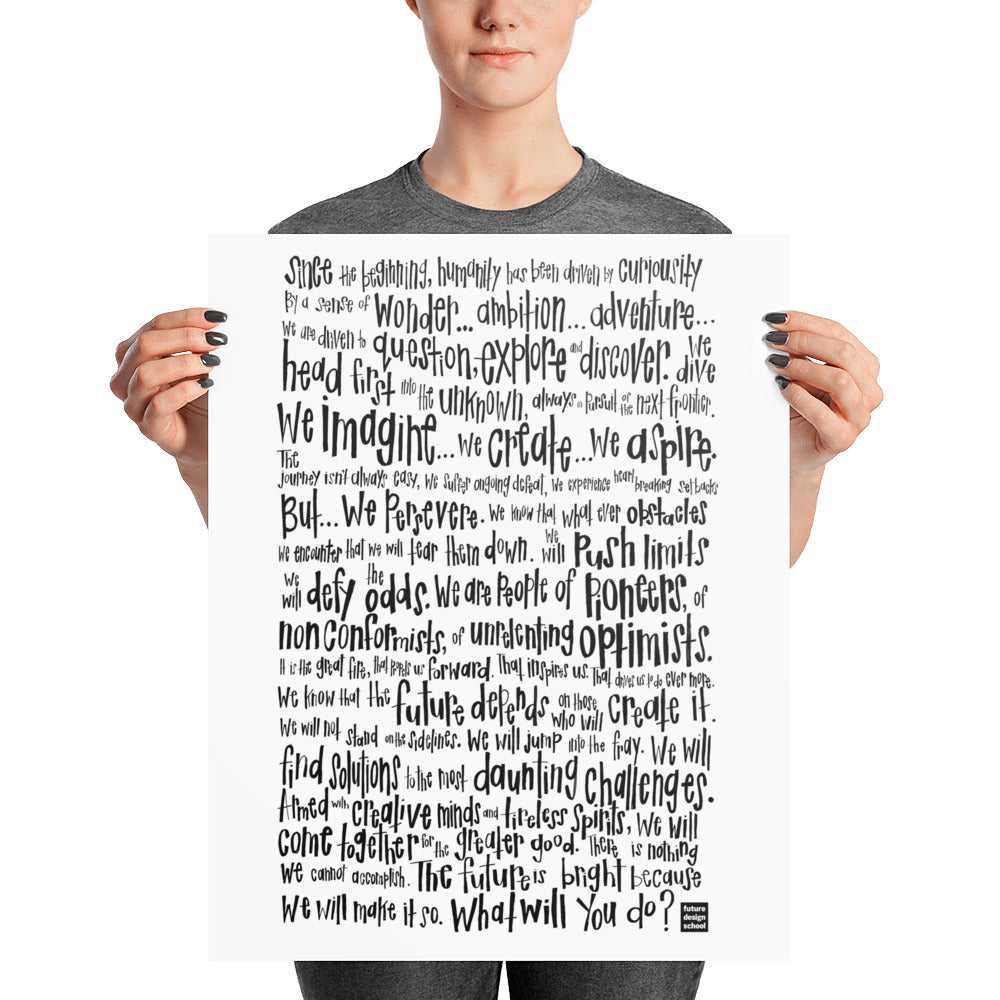 Since the beginning, humanity has been driven by curiousity
By a sense of wonder... ambition... adventure...
We are driven to question, explore and discover. We dive
head first into the unknown, always in pursuit of the next frontier.
We imagine... we create... we aspire.
The journey isn't always easy, we suffer ongoing defeat, we experience heart breaking setbacks
But... We Persevere. We know that what ever obstacles
we encounter that we will tear them down. We will Push limits
we will defy the odds. We are People of Pioneers, of
non conformists, of unrelenting optimists.
It is the great fire, that propels us forward. That inspires us. That drives us to do ever more.
We know that the future depends on those who will create it.
We will not stand on the sidelines. We will jump into the fray. We will
find solutions to the most daunting challenges.
Armed with creative minds and tireless spirits, we will
come together for the greater good. There is nothing
we cannot accomplish. The future is bright because
we will make it so. What will you do?
future
design
school